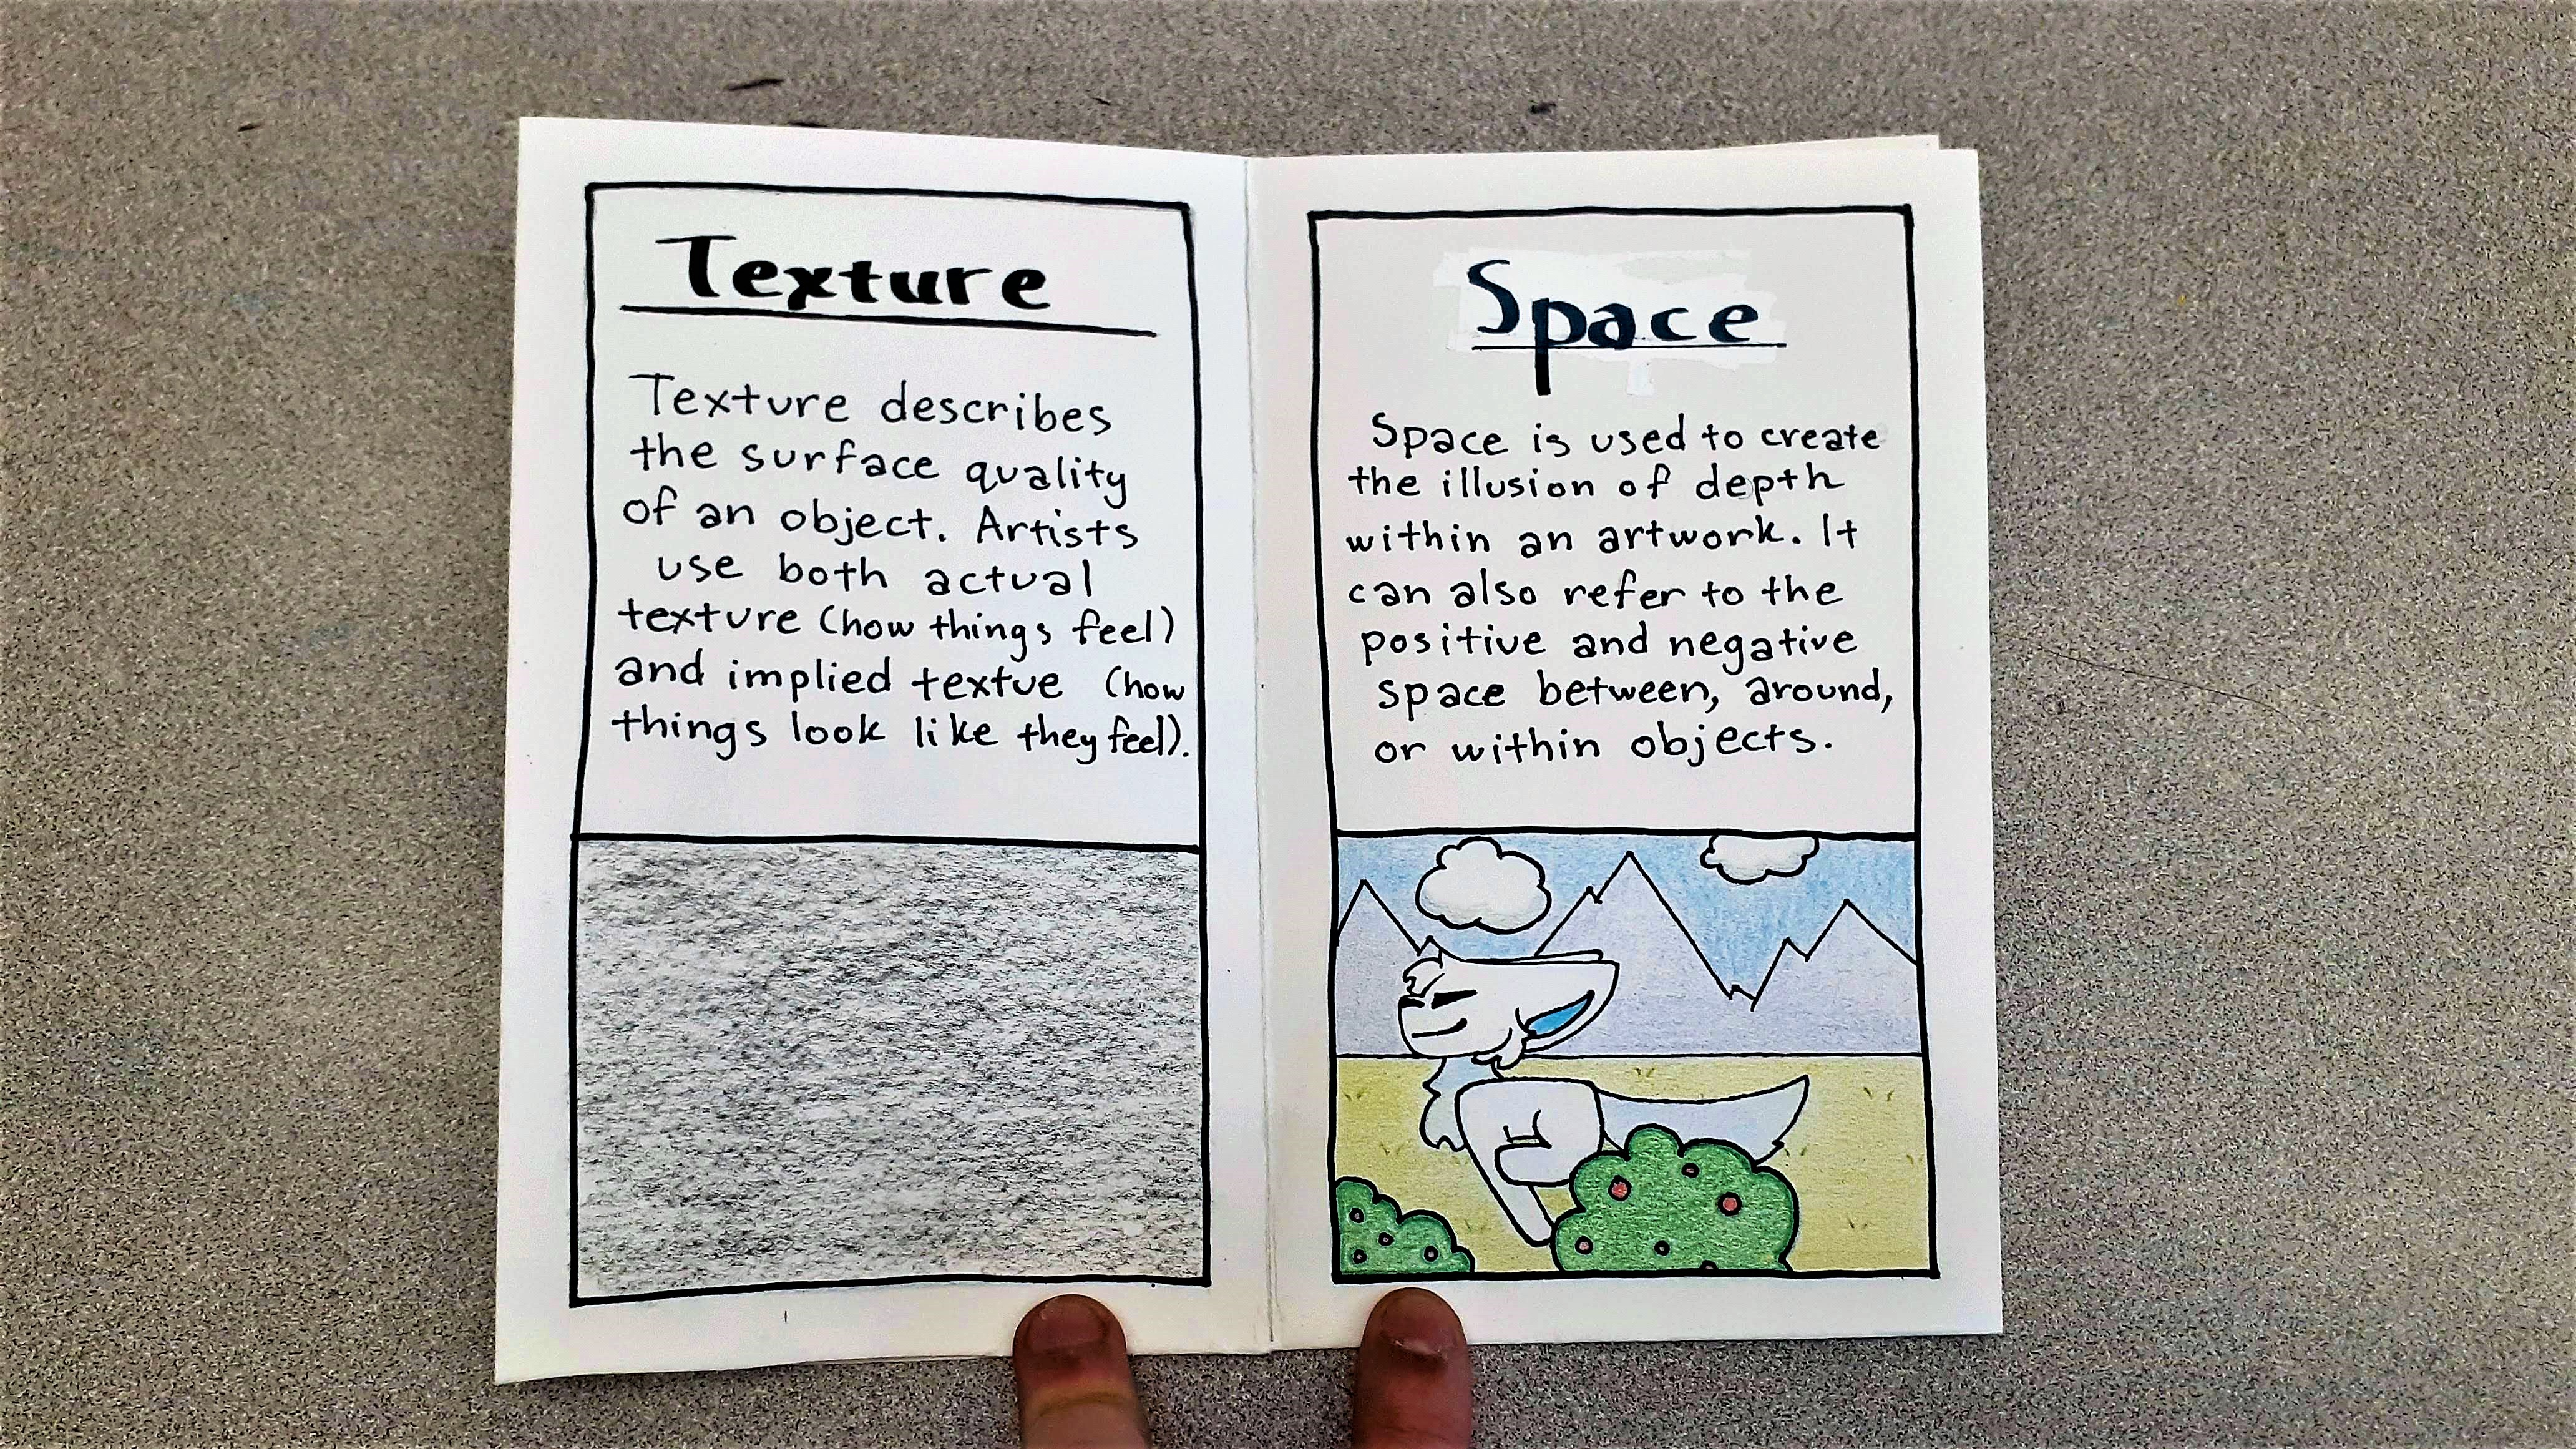 Texture
Texture describes
the surface quality
of an object. Artists
use both actual
texture (how things feel)
and implied textue (how
things look like they feel).
Space
Space is used to create
the illusion of depth
within an artwork. It
can also refer to the
positive and negative
space between, around,
or within objects.